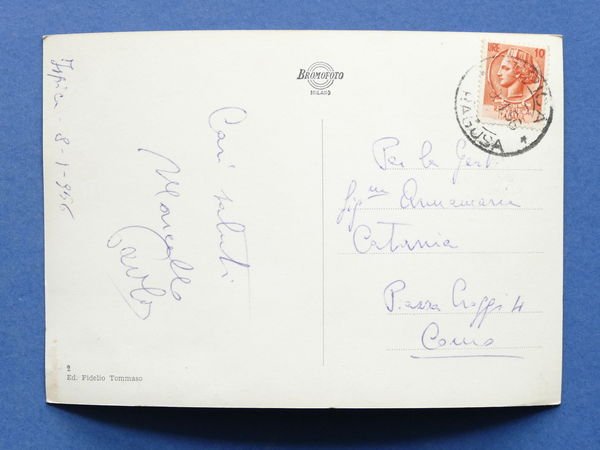 Ispica - 8-1-956
Cari saluti
Marcello
Carlo
BROMOFOTO
MILANO
LIRE 10
ISPICA
RAGUSA
Per la Gent.
sig.na Annamaria
Catania
Piazza 4
Como
2
Ed. Pidelio Tommaso